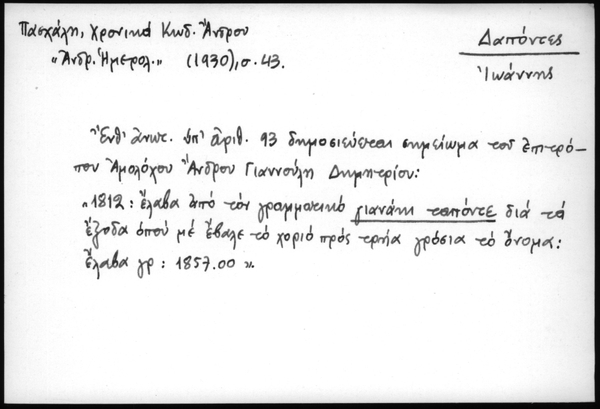 Πασχάλη, Χρονικά Κώδ. Ἄνδρου
"Ἀνδρ. Ἡμερολ." (1930), σ. 43.
Δαπόντες
Ἰωάννης
Ἔνθ' ἀνωτ. ὑπ' ἀριθ. 93 δημοσιεύεται σημείωμα τοῦ ἐπιτρό-
που Ἀμολόχου Ἄνδρου Γιαννούλη Δημητρίου:
"1812: ἔλαβα ἀπό τόν γραμματικό γιανάκη ταπόντε διά τά
ἔξοδα ὁπού μέ ἔβαλε τό χοριό πρός τρηα γρόσια τό ὄνομα:
ἔλαβα γρ: 1857.00 ".